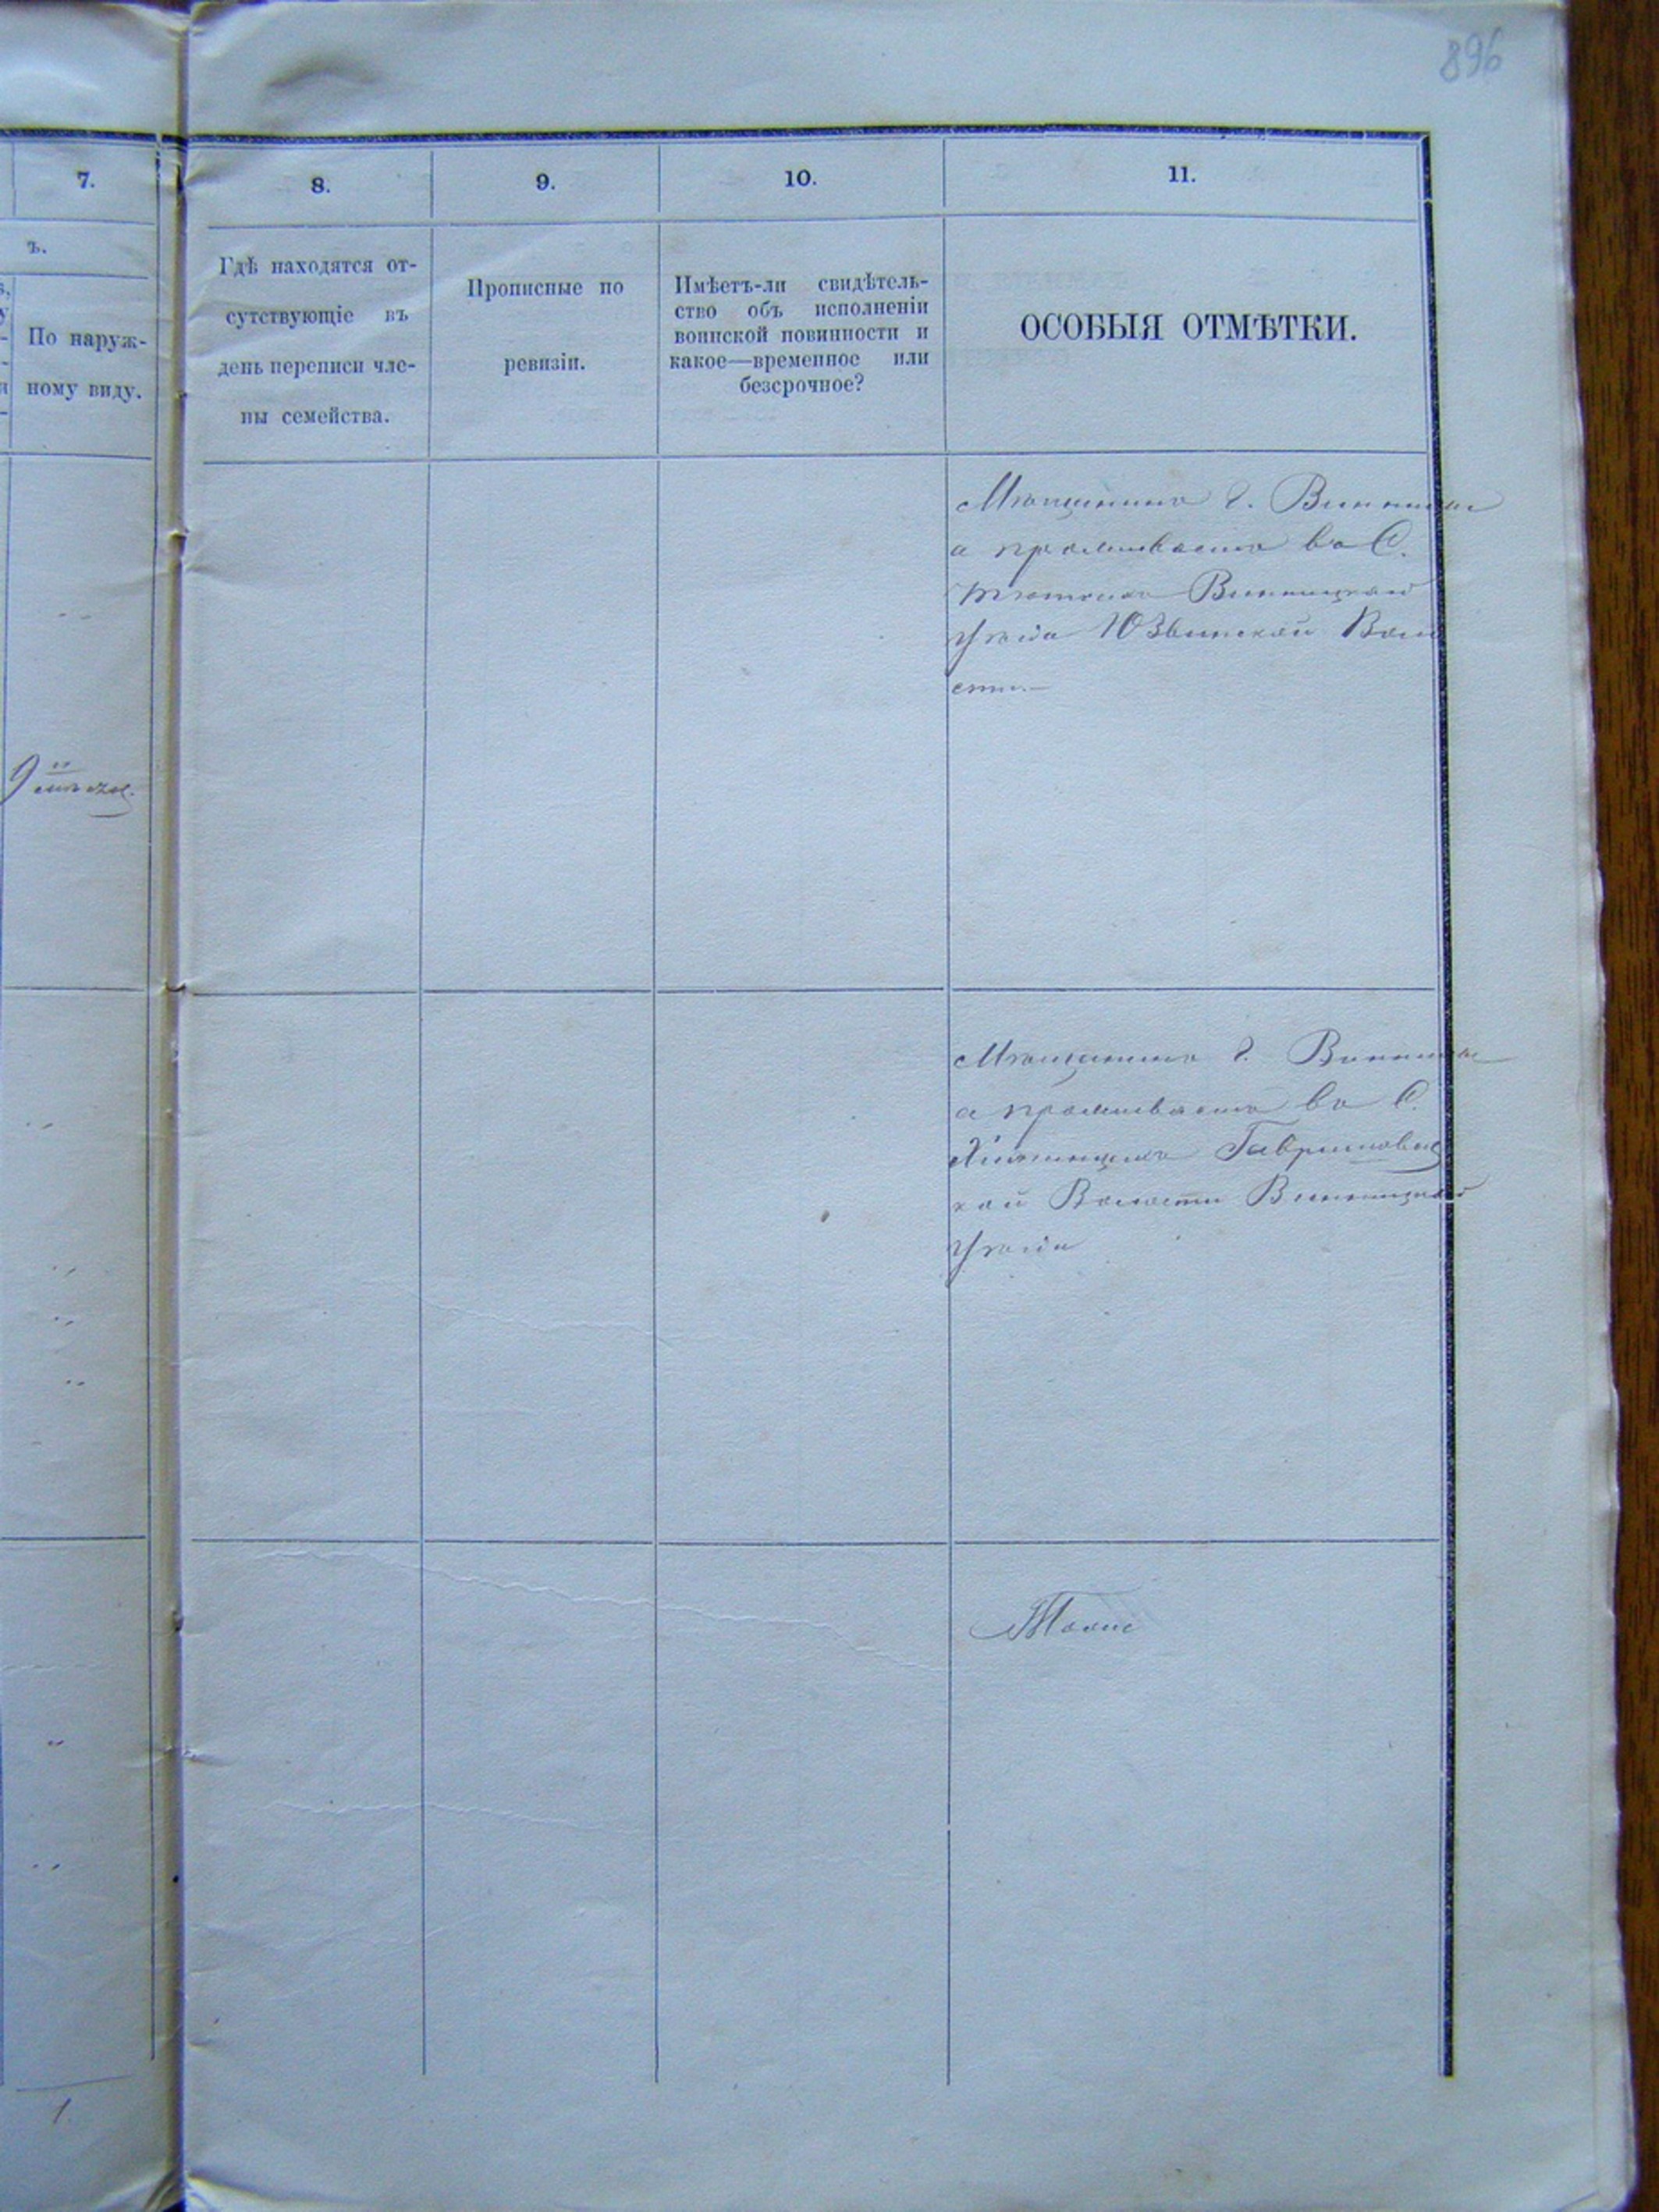 896
7.
8.
9.
10.
11.
ъ.
По наруж-
ному виду.
Гдѣ находятся от-
сутствующіе въ
день переписи чле-
ны семейства.
Прописные по
ревизіи.
Имѣетъ-ли свидѣтель-
ство объ исполненіи
воинской повинности и
какое—временное или
безсрочное?
ОСОБЫЯ ОТМѢТКИ.
Мѣщанинъ г. Винницы
а проживаетъ въ С.
Винницкаго
уѣзда Юзвинской Воло
сти.—
9
Мѣщанинъ г. Винницы
а проживаетъ въ С.
Гавришовс
кой Волости Винницкаго
уѣзда
Тоже
1